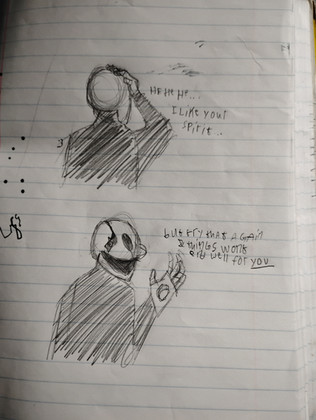 HEHEHE...
I Like your
Spirit..
but try that AGAIN
& things wont
end well for you